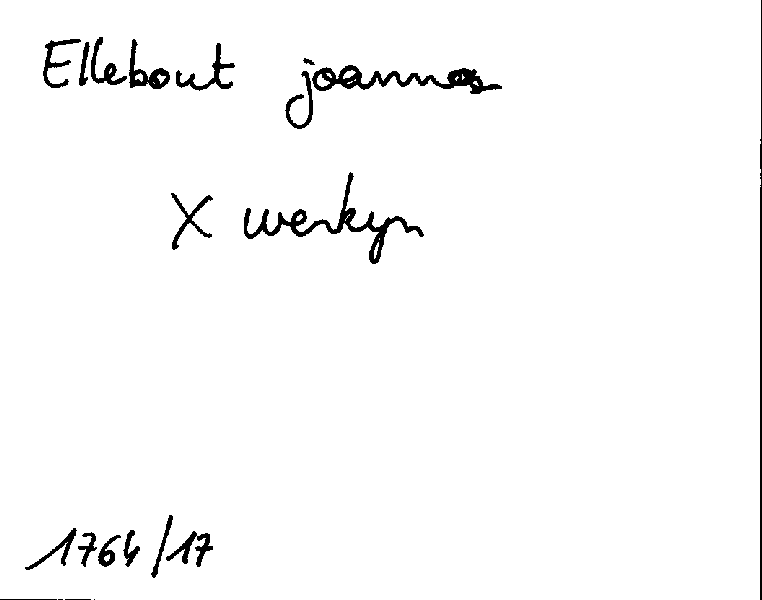 Ellebout joannes
X werkyn
1764/17